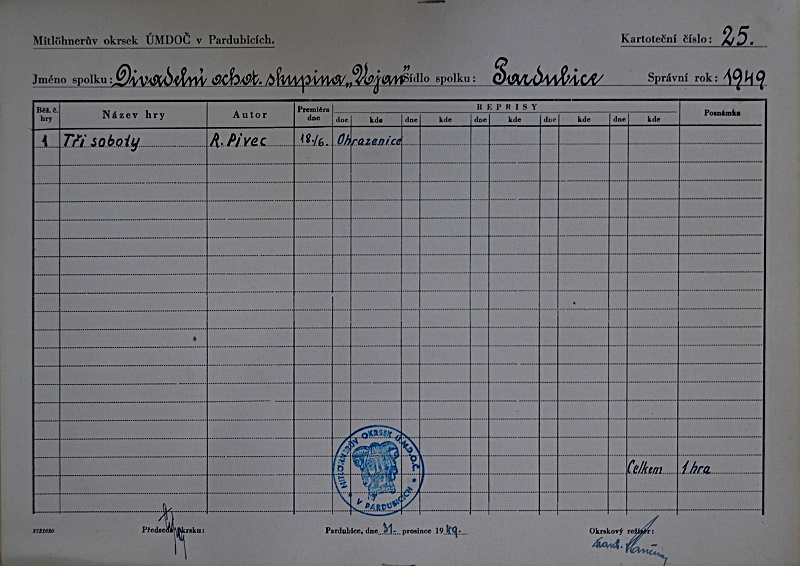 Mitlöhnerův okrsek ÚMDOČ v Pardubicích. Kartoteční číslo: 25.
Jméno spolku: Divadelní ochot. skupina „Vojan" Sídlo spolku: Pardubice Správní rok: 1949
Běž. č. hry Název hry Autor Premiéra dne REPRISY Poznámka
dne kde dne kde dne kde dne kde dne kde
1 Tři soboty R. Pivec 18./6. Ohrazenice
MITLÖHNERŮV OKRSEK Ú.M.D.O.Č. V PARDUBICÍCH
Celkem 1 hra
Předseda okrsku: Pardubice, dne 31. prosince 1949. Okrskový režisér: